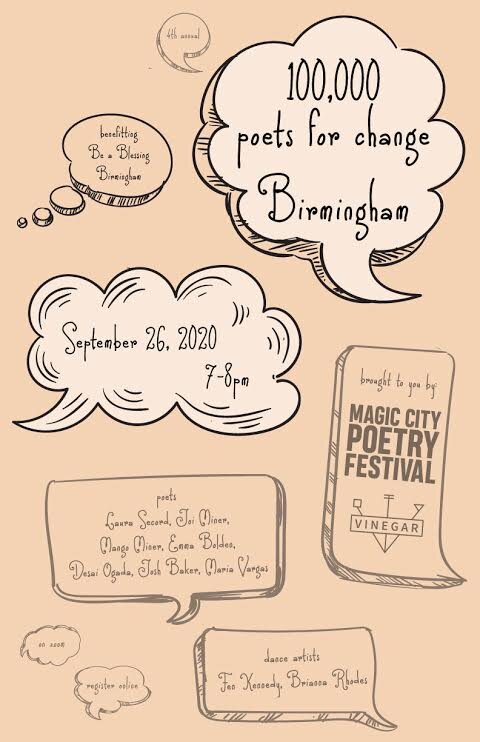 4th annual
100,000
poets for change
Birmingham
benefitting
Be a Blessing
Birmingham
September 26, 2020
7-8pm
brought to you by:
MAGIC CITY
POETRY
FESTIVAL
VINEGAR
poets
Laura Secord, Joi Miner,
Mango Miner, Emma Bolden,
Desai Ogada, Josh Baker, Maria Vargas
on zoom
register online
dance artists
Fen Kennedy, Brianna Rhodes